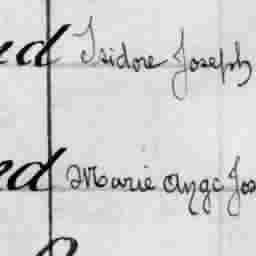 ud Isidore Joseph
ed Marie Ange Jos